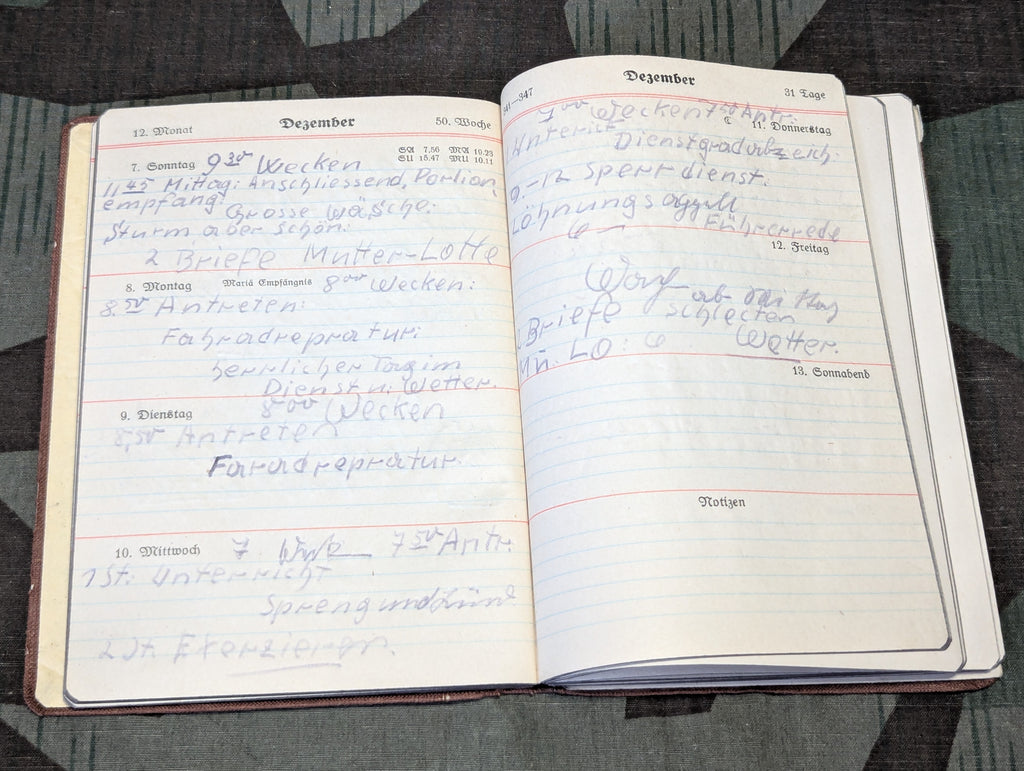 12. Monat Dezember 50. Woche
7. Sonntag 9 30 Wecken SA 7.56 MA 19.23
SU 15.47 MU 10.11
11 45 Mittag: Anschliessend, Portion
empfang: Grosse Wäsche:
Sturm aber schön:
2 Briefe Mutter-Lotte
8. Montag Mariä Empfängnis 8 00 Wecken:
8.50 Antreten:
Fahradrepratur:
herrlicher Tag im
Dienst u. Wetter.
9. Dienstag 8 00 Wecken
8,50 Antreten
Faradrepratur
10. Mittwoch 7 7 50 Antr.
1 St. Unterricht
Spreng und Zünd
2 St. Exerzieren.
Dezember
341—347 31 Tage
7 00 Wecken 7 50 Antr:
11. Donnerstag
Unterricht Dienstgradabzeich:
9.-12 Sperrdienst.
Löhnungsappell
Führerrede
12. Freitag
ab
Briefe schlecten
Mu. Lo: Wetter.
13. Sonnabend
Notizen